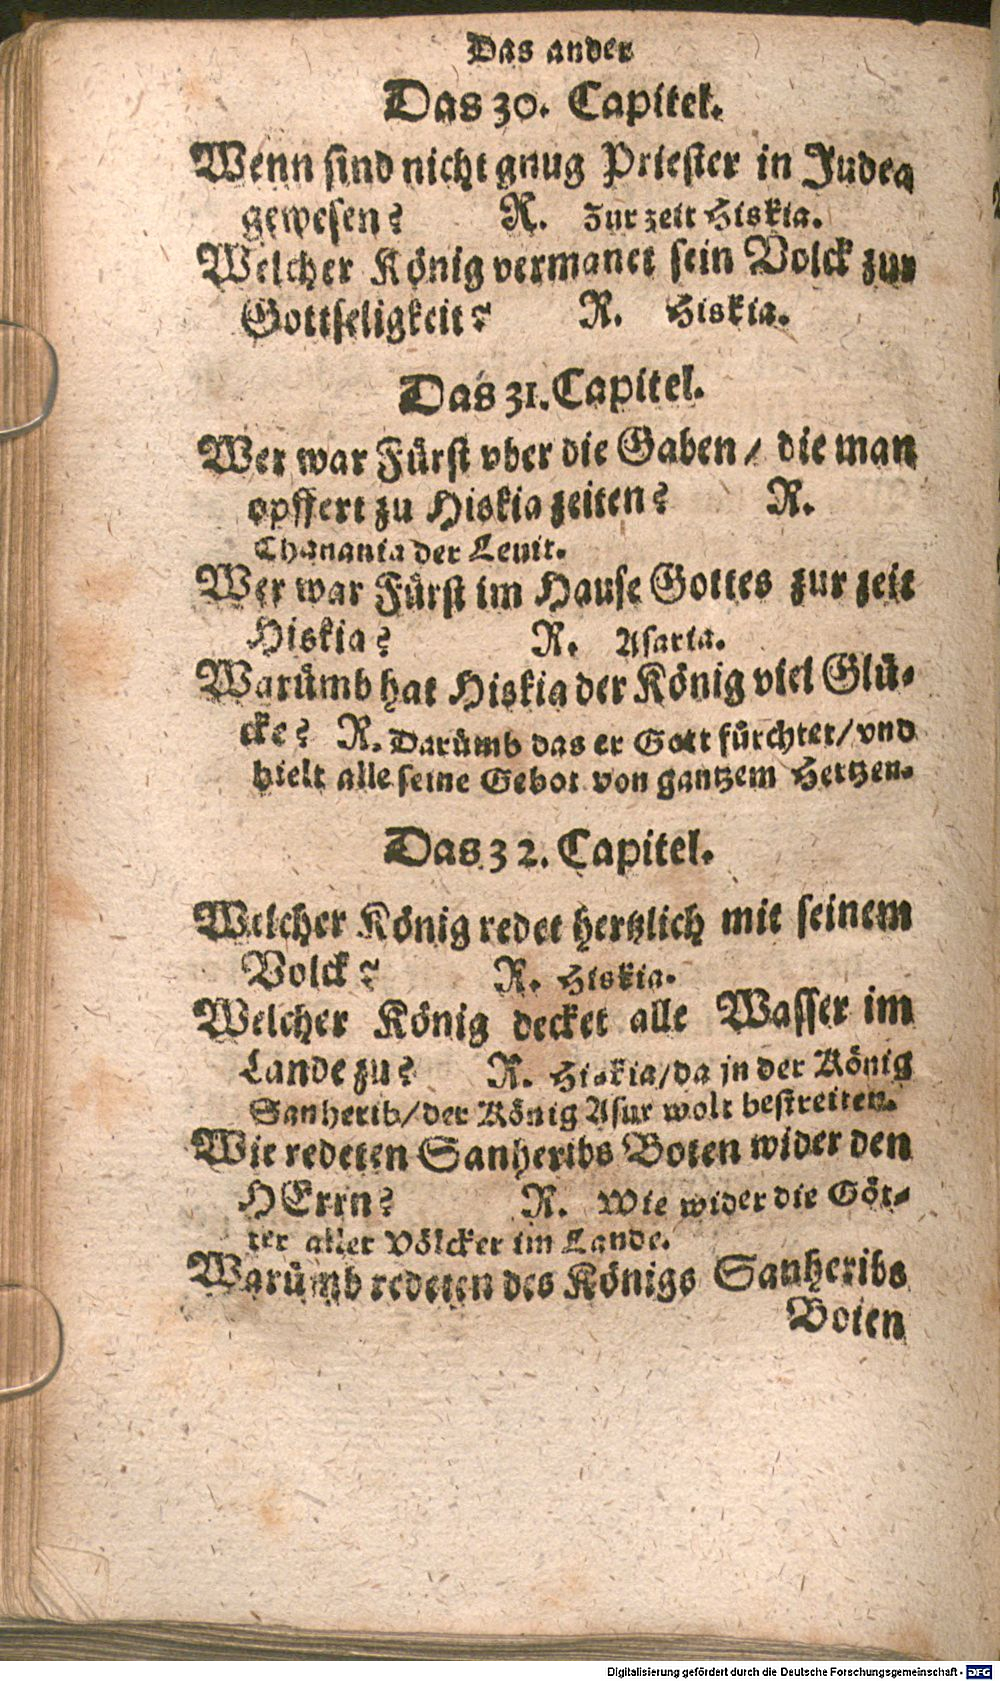 Das ander
Das 30. Capitel.
Wenn sind nicht gnug Priester in Judea
gewesen? R. Zur zeit Hiskia.
Welcher König vermanet sein Volck zur
Gottseligkeit? R. Hiskia.
Das 31. Capitel.
Wer war Fürst vber die Gaben / die man
opffert zu Hiskia zeiten? R.
Chanania der Leuit.
Wer war Fürst im Hause Gottes zur zeit
Hiskia? R. Asaria.
Warümb hat Hiskia der König viel Glü-
cke? R. Darümb das er Gott fürchtet/ vnd
hielt alle seine Gebot von gantzem Hertzen.
Das 32. Capitel.
Welcher König redet hertzlich mit seinem
Volck? R. Hiskia.
Welcher König decket alle Wasser im
Lande zu? R. Hiskia/da jn der König
Sanherib/der König Asur wolt bestreiten.
Wie redeten Sanheribs Boten wider den
HErrn? R. Wie wider die Göt-
ter aller Völcker im Lande.
Warümb redeten des Königs Sanheribs
Boten
Digitalisierung gefördert durch die Deutsche Forschungsgemeinschaft - DFG